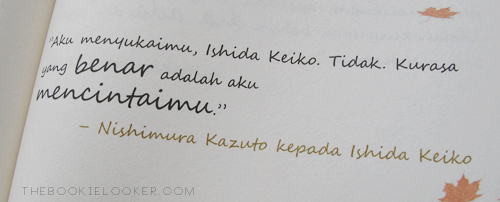 "Aku menyukaimu, Ishida Keiko. Tidak. Kurasa
yang benar adalah aku
mencintaimu."
– Nishimura Kazuto kepada Ishida Keiko
THEBOOKIELOOKER.COM